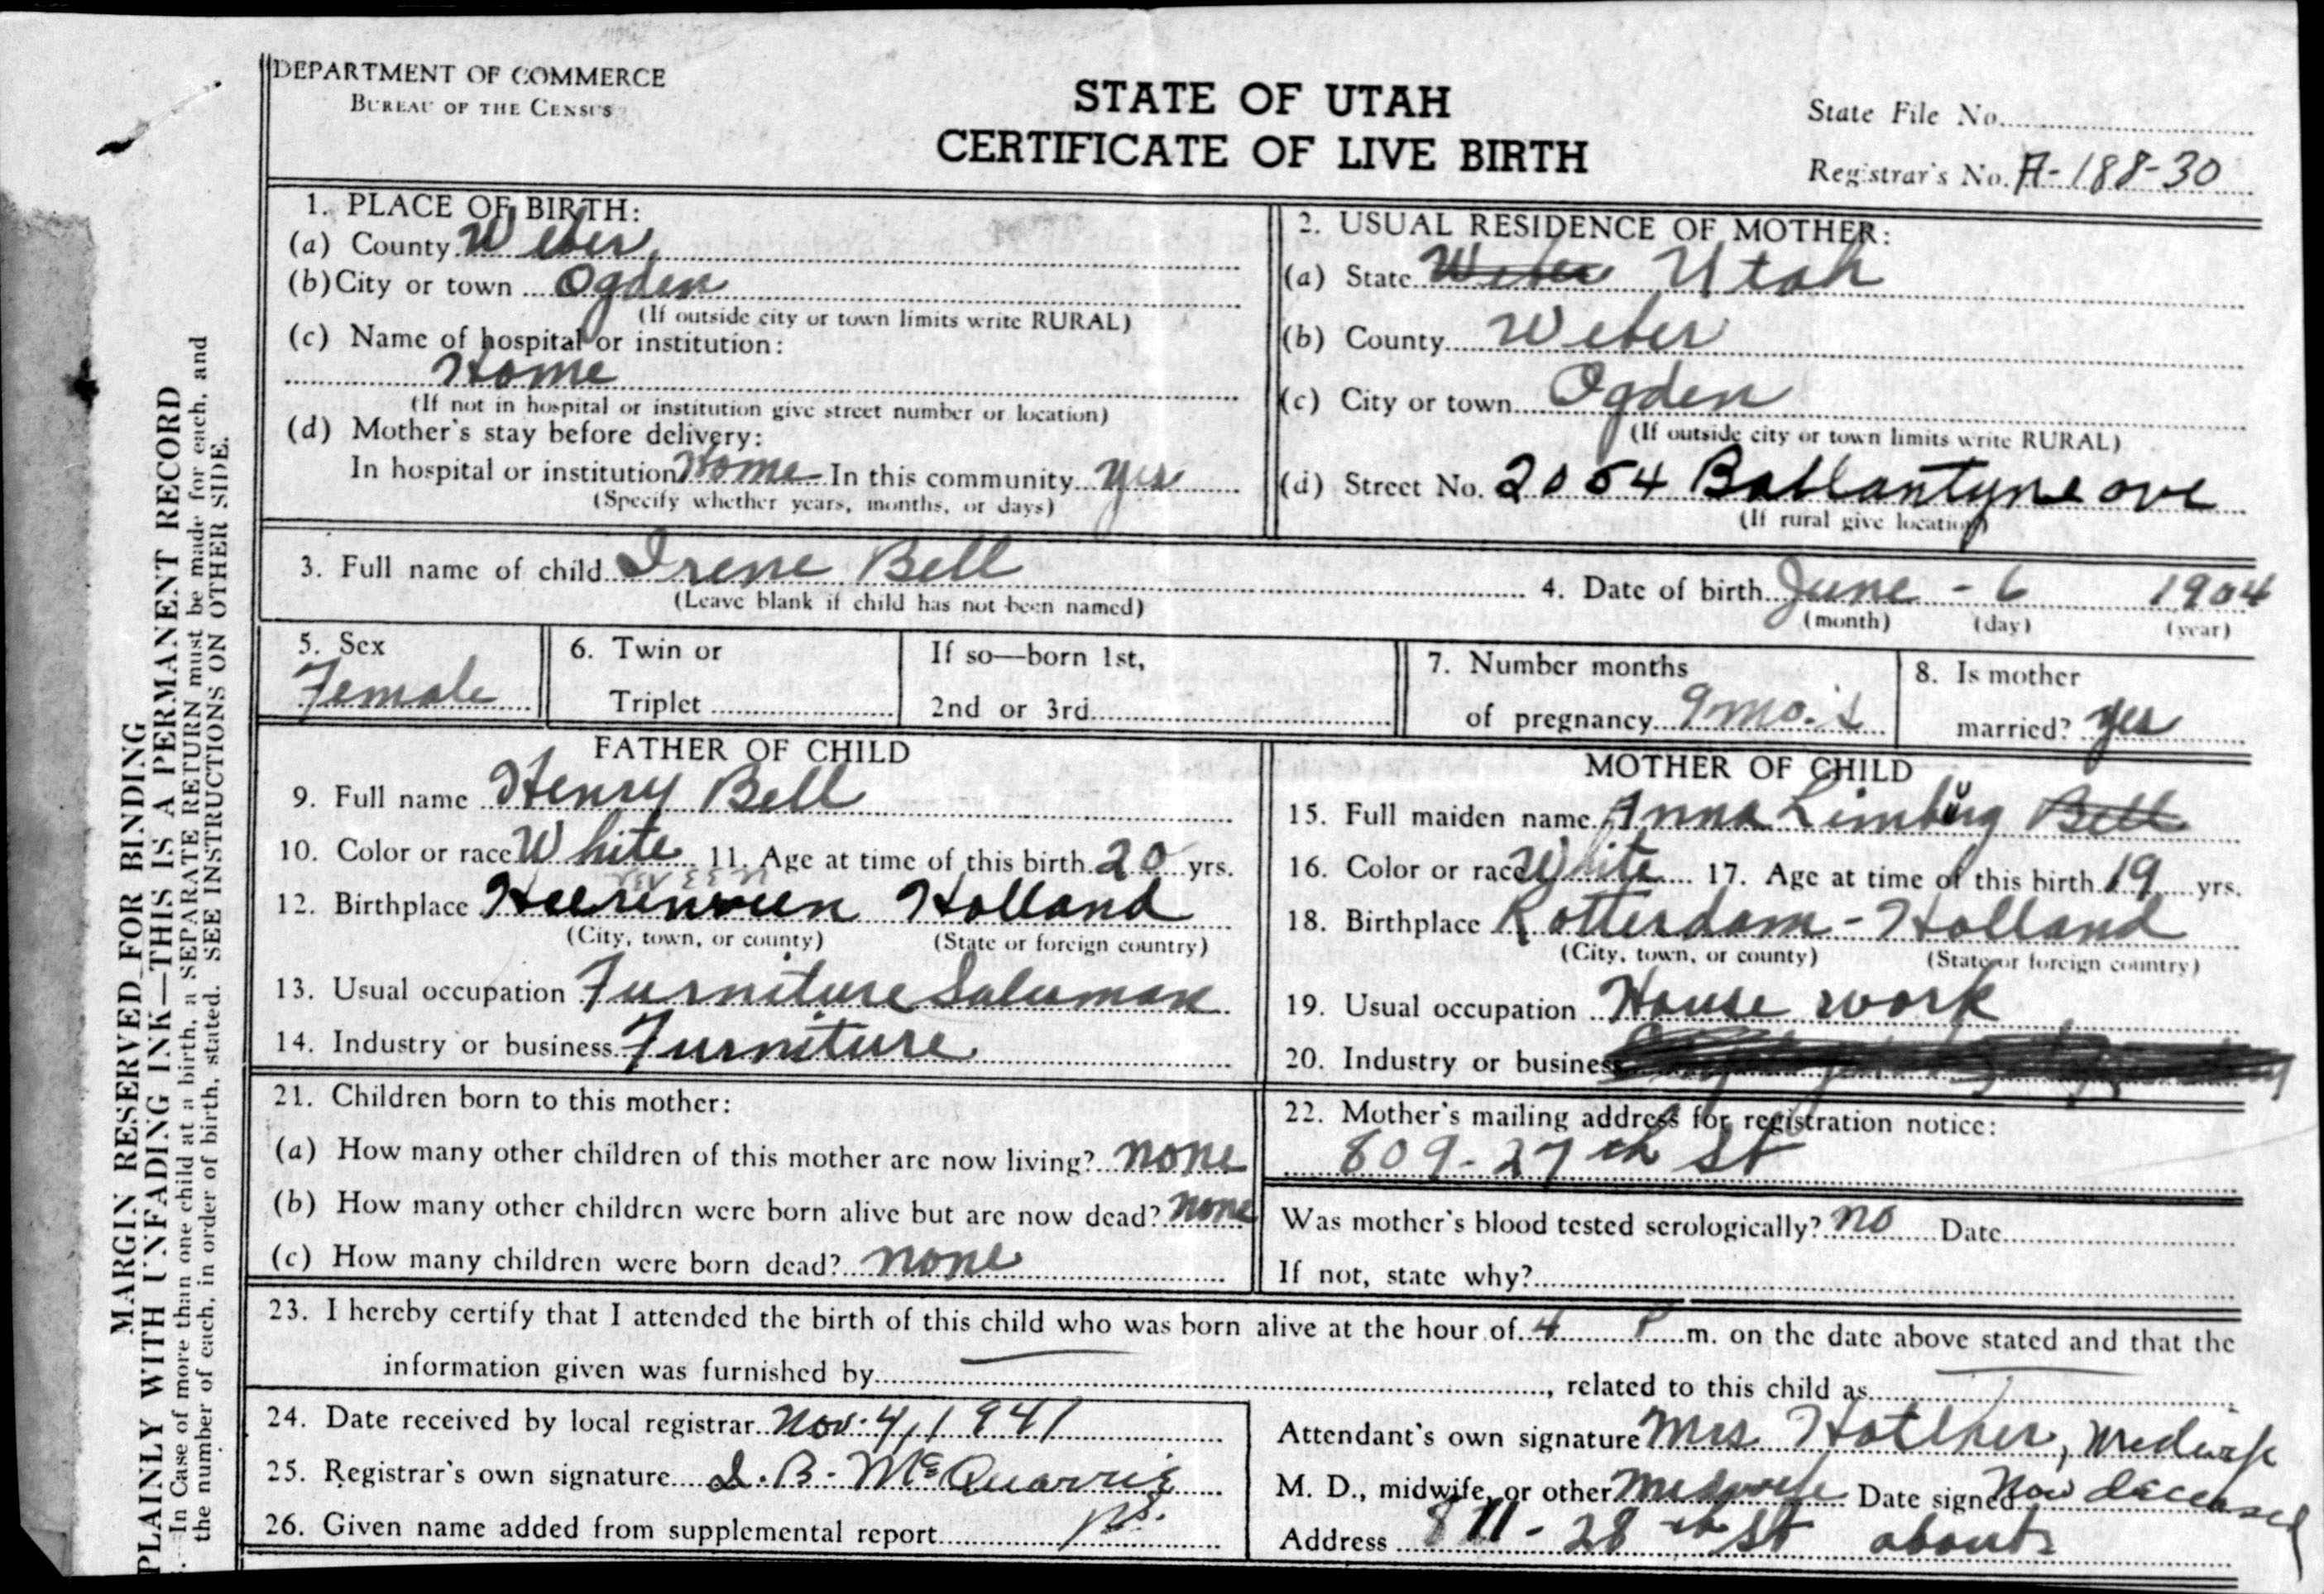 DEPARTMENT OF COMMERCE
BUREAU OF THE CENSUS
STATE OF UTAH
CERTIFICATE OF LIVE BIRTH
State File No.
Registrar's No. A-188-30
MARGIN RESERVED FOR BINDING
PLAINLY WITH UNFADING INK—THIS IS A PERMANENT RECORD
In Case of more than one child at a birth, a SEPARATE RETURN must be made for each, and
the number of each, in order of birth, stated. SEE INSTRUCTIONS ON OTHER SIDE.
1. PLACE OF BIRTH:
(a) County Weber
(b) City or town Ogden
(If outside city or town limits write RURAL)
(c) Name of hospital or institution:
Home
(If not in hospital or institution give street number or location)
(d) Mother's stay before delivery:
In hospital or institution Home In this community yes
(Specify whether years, months, or days)
2. USUAL RESIDENCE OF MOTHER:
(a) State Weber Utah
(b) County Weber
(c) City or town Ogden
(If outside city or town limits write RURAL)
(d) Street No. 2054 Ballantyne ave
(If rural give location)
3. Full name of child Irene Bell
(Leave blank if child has not been named)
4. Date of birth June - 6 1904
(month) (day) (year)
5. Sex
Female
6. Twin or
Triplet
If so—born 1st,
2nd or 3rd
7. Number months
of pregnancy 9 mo.'s
8. Is mother
married? yes
FATHER OF CHILD
9. Full name Henry Bell
10. Color or race White 11. Age at time of this birth 20 yrs.
12. Birthplace Heerenveen Holland
(City, town, or county) (State or foreign country)
13. Usual occupation Furniture Salesman
14. Industry or business Furniture
MOTHER OF CHILD
15. Full maiden name Anna Limburg Bell
16. Color or race White 17. Age at time of this birth 19 yrs.
18. Birthplace Rotterdam - Holland
(City, town, or county) (State or foreign country)
19. Usual occupation House work
20. Industry or business
21. Children born to this mother:
(a) How many other children of this mother are now living? none
(b) How many other children were born alive but are now dead? none
(c) How many children were born dead? none
22. Mother's mailing address for registration notice:
809-27th St
Was mother's blood tested serologically? no Date
If not, state why?
23. I hereby certify that I attended the birth of this child who was born alive at the hour of 4 P m. on the date above stated and that the
information given was furnished by , related to this child as
24. Date received by local registrar Nov. 4, 1941
25. Registrar's own signature McQuarrie
26. Given name added from supplemental report
Attendant's own signature Mrs , Midwife
M. D., midwife, or other Midwife Date signed Now deceased
Address 871-28th St about